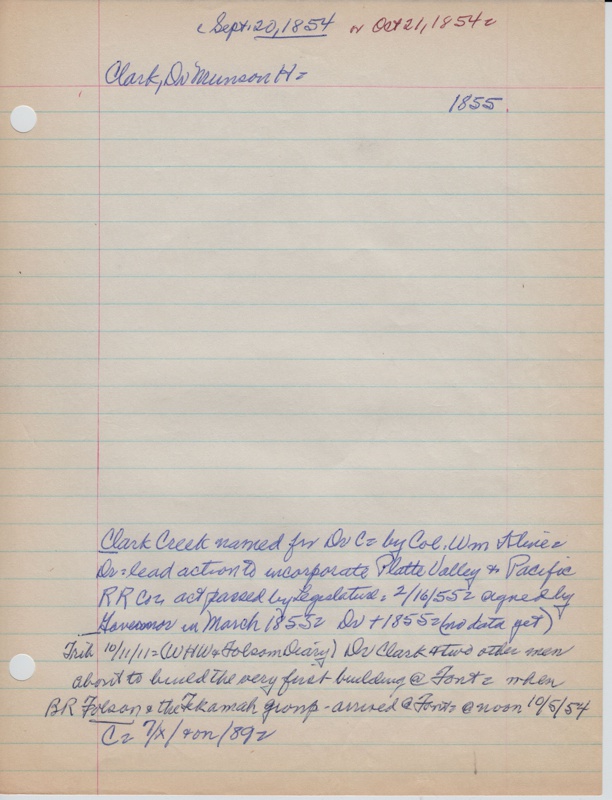 c Sept. 20, 1854 or Oct 21, 1854=
Clark, Dr Munson H=
1855.
Clark Creek named for Dr C= by Col. Wm Kline=
Dr= lead action to incorporate Platte Valley & Pacific
RR Co= act passed by legislature= 2/16/55= signed by
Governor in March 1855= Dr + 1855= (no data yet)
Trib 10/11/11= (WHW & Folsom Diary) Dr Clark & two other men
about to build the very first building @ Font= when
BR Folsom & the Tekamah group - arrived @ Font= @ noon 10/5/54
C= 7/x/ /89=